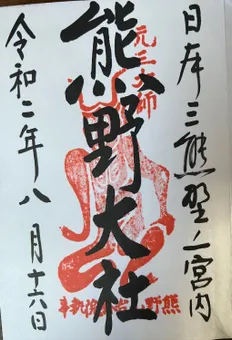 日本三熊野ノ宮内
元三大師
熊野大社
令和二年八月十六日